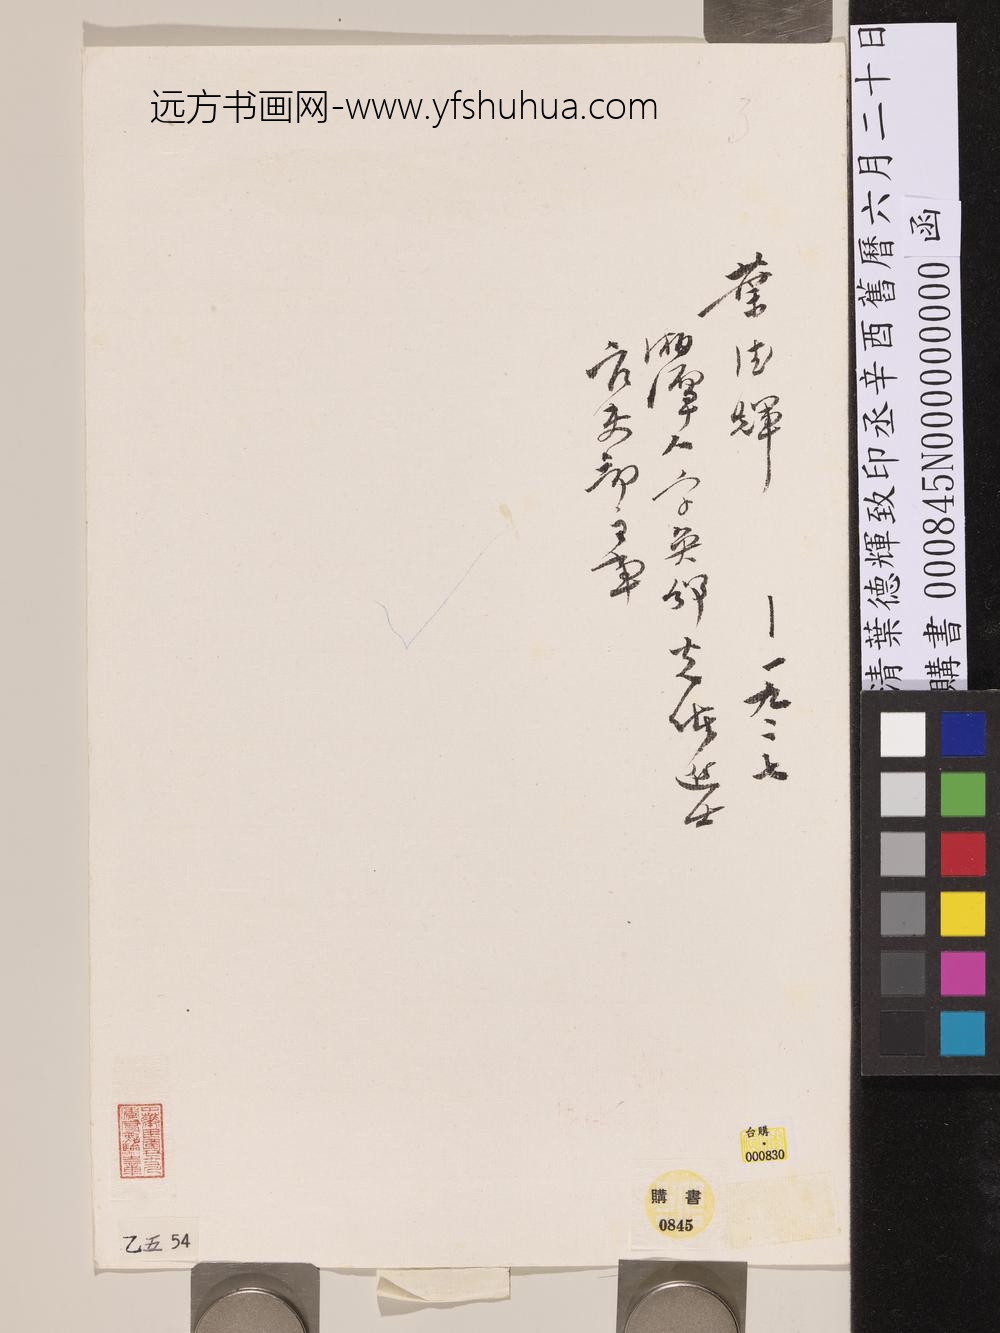 远方书画网-www.yfshuhua.com
3
葉德輝 —一九二七
湘潭人字奐份光緒進士
官吏部主事
清葉德輝致印丞辛酉舊曆六月二十日函
購書 000845N000000000
台購
000830
購書
0845
乙五 54